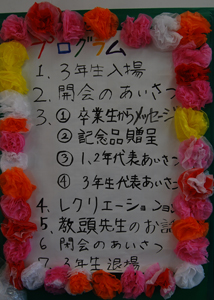 プログラム
1. 3年生入場
2. 開会のあいさつ
3. ① 卒業生からメッセージ
② 記念品贈呈
③ 1、2年代表あいさつ
④ 3年生代表あいさつ
4. レクリエーション
5. 教頭先生のお話
6 閉会のあいさつ
7. 3年生退場